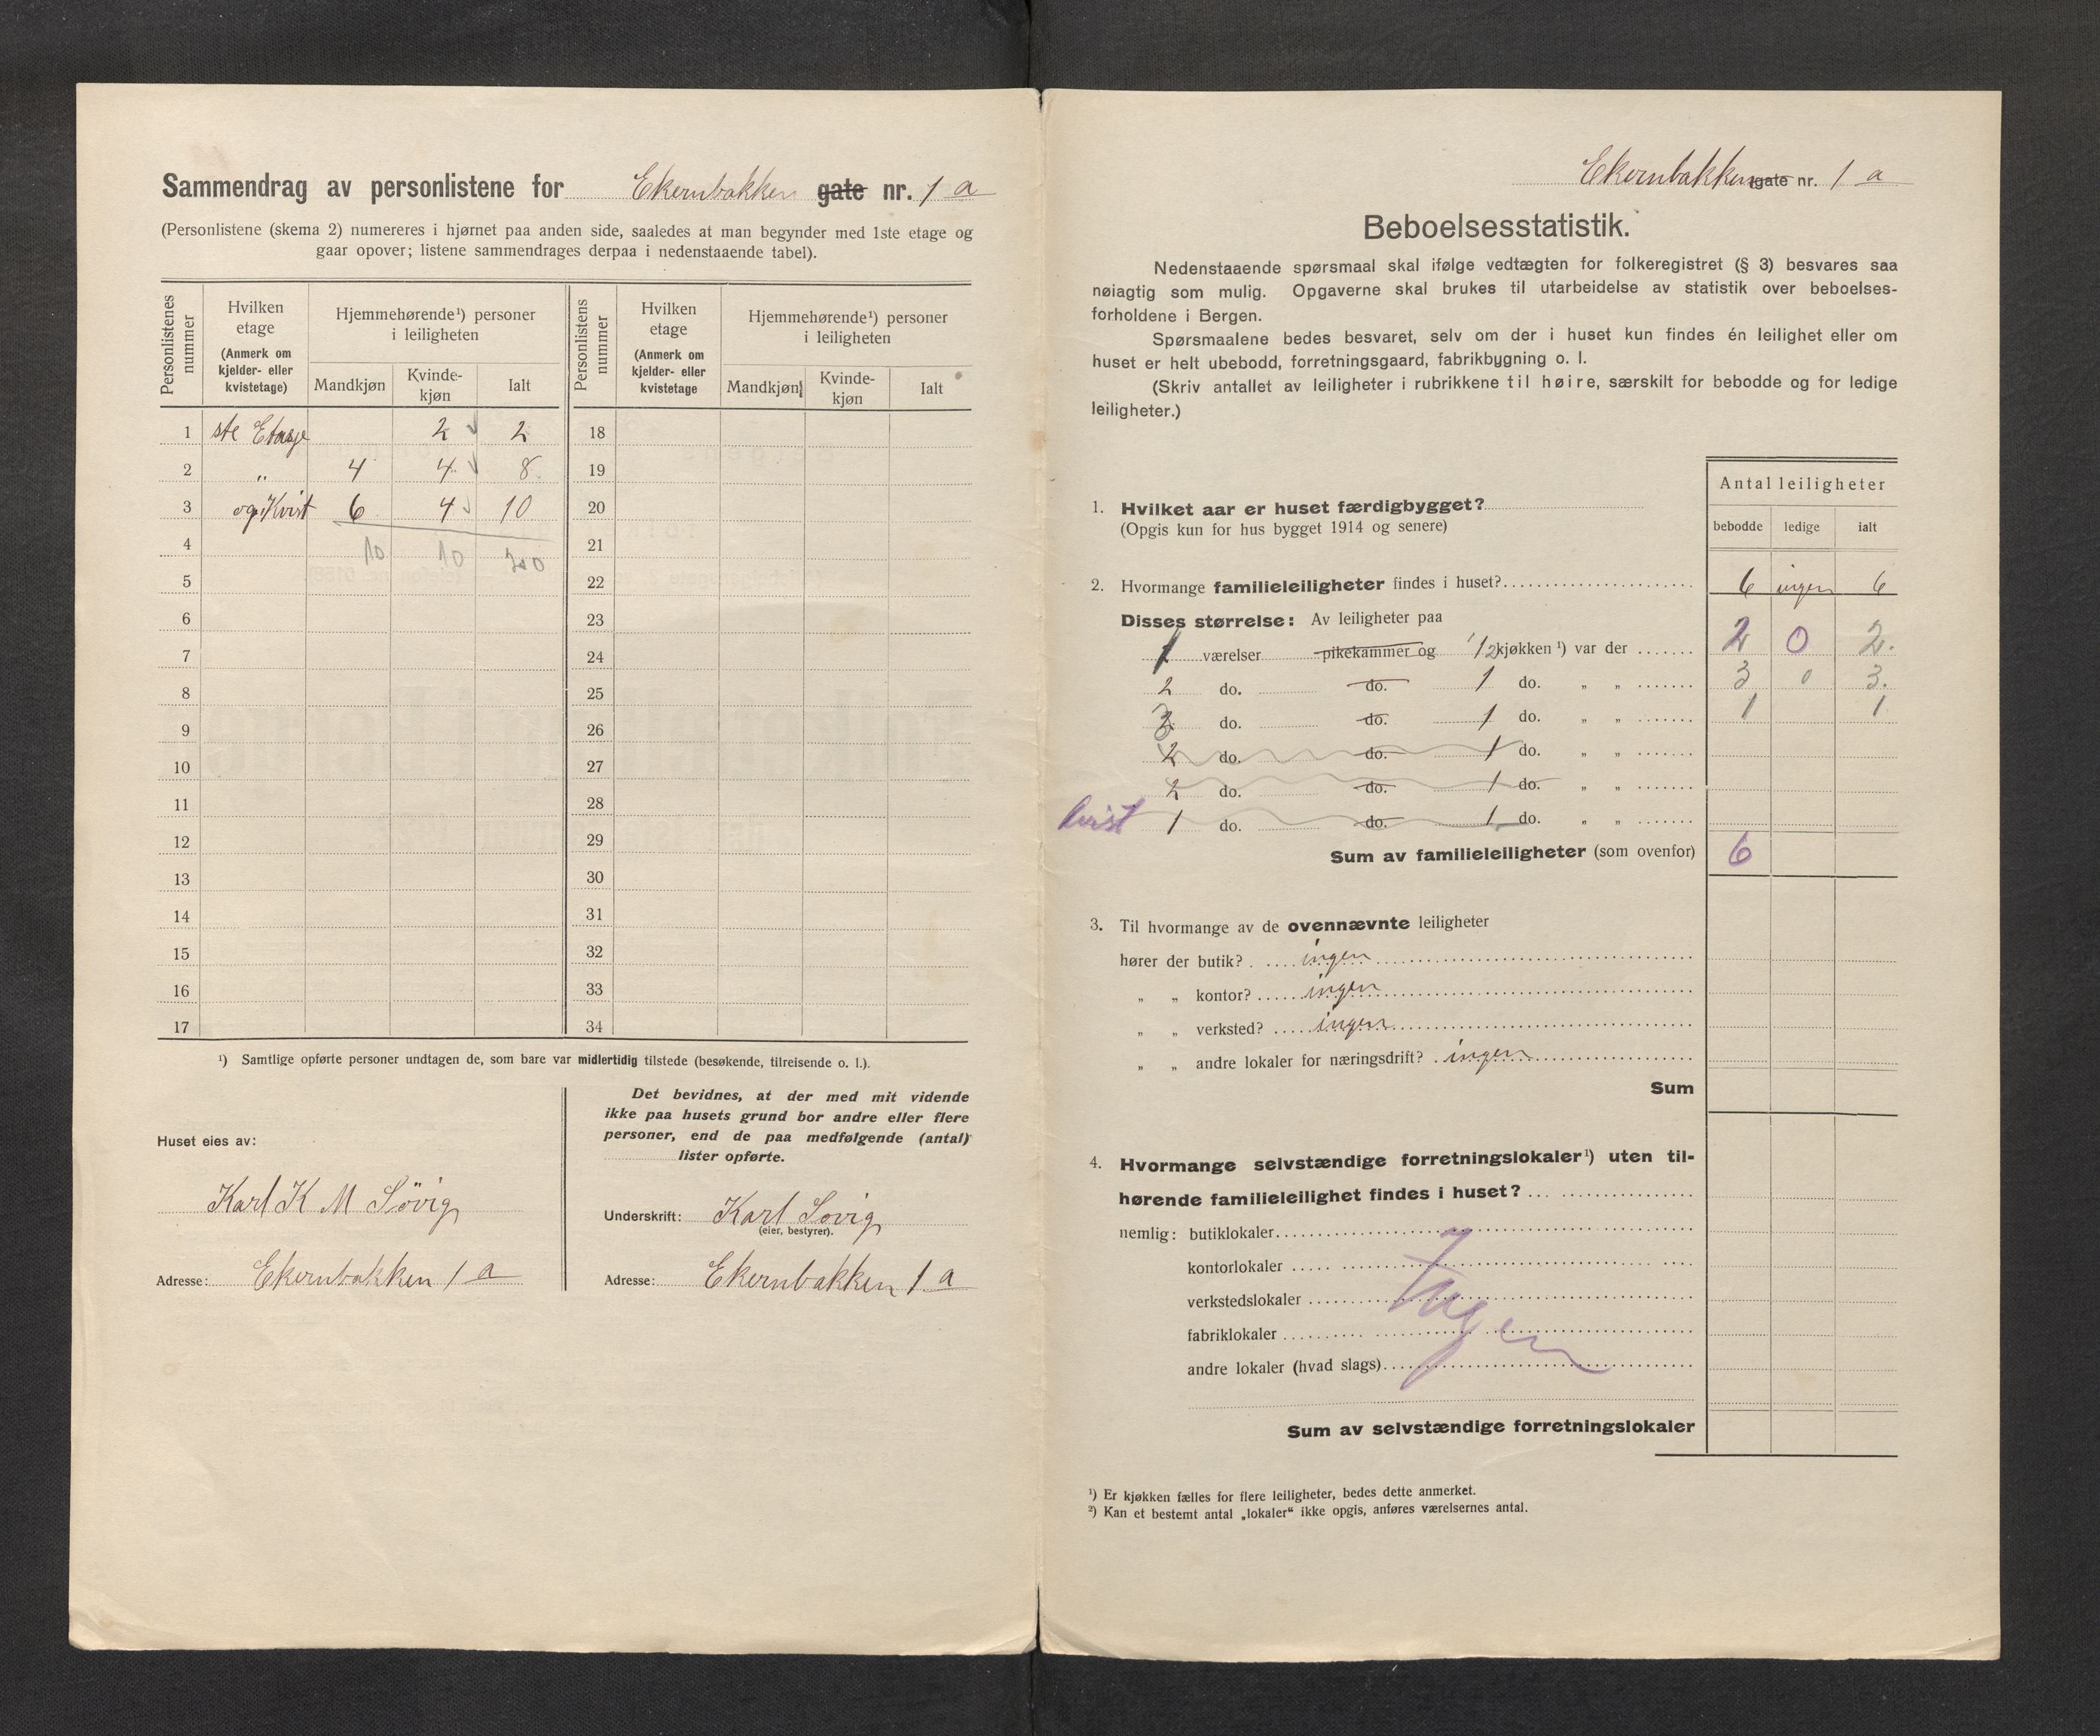 Sammendrag av personlistene for Ekernbakken gate nr. 1 a
(Personlistene (skema 2) numereres i hjørnet paa anden side, saaledes at man begynder med 1ste etage og
gaar opover; listene sammendrages derpaa i nedenstaaende tabel).
Personlistenes nummer
Hvilken etage (Anmerk om kjelder- eller kvistetage)
Hjemmehørende¹) personer i leiligheten
Mandkjøn Kvinde-kjøn Ialt
Personlistens nummer
Hvilken etage (Anmerk om kjelder- eller kvistetage
Hjemmehørende¹) personer i leiligheten
Mandkjøn Kvinde-kjøn Ialt
1 ste Etasje 2 2 18
2 " 4 4 8 19
3 og Kvist 6 4 10 20
4 10 10 20 21
5 22
6 23
7 24
8 25
9 26
10 27
11 28
12 29
13 30
14 31
15 32
16 33
17 34
¹) Samtlige opførte personer undtagen de, som bare var midlertidig tilstede (besøkende, tilreisende o. l.).
Huset eies av:
Karl K M Sövig
Adresse: Ekernbakken 1 a
Det bevidnes, at der med mit vidende
ikke paa husets grund bor andre eller flere
personer, end de paa medfølgende (antal)
lister opførte.
Underskrift: Karl Sovig
(eier, bestyrer).
Adresse: Ekernbakken 1 a
Ekernbakken gate nr. 1 a
Beboelsesstatistik.
Nedenstaaende spørsmaal skal ifølge vedtægten for folkeregistret (§ 3) besvares saa
nøiagtig som mulig. Opgaverne skal brukes til utarbeidelse av statistik over beboelses-
forholdene i Bergen.
Spørsmaalene bedes besvaret, selv om der i huset kun findes én leilighet eller om
huset er helt ubebodd, forretningsgaard, fabrikbygning o. l.
(Skriv antallet av leiligheter i rubrikkene til høire, særskilt for bebodde og for ledige
leiligheter.)
Antal leiligheter
bebodde ledige ialt
1. Hvilket aar er huset færdigbygget?
(Opgis kun for hus bygget 1914 og senere)
2. Hvormange familieleiligheter findes i huset? 6 ingen 6
Disses størrelse: Av leiligheter paa
1 værelser pikekammer og 1/2 kjøkken ¹) var der 2 0 2.
2 do. do. 1 do. " " 3 0 3.
3 do. do. 1 do. " " 1 1
2 do. do. 1 do. " "
2 do. do. 1 do. " "
kvist 1 do. do. 1 do. " "
Sum av familieleiligheter (som ovenfor) 6
3. Til hvormange av de ovennævnte leiligheter
hører der butik? ingen
" " kontor? ingen
" " verksted? ingen
" " andre lokaler for næringsdrift? ingen
Sum
4. Hvormange selvstændige forretningslokaler¹) uten til-
hørende familieleilighet findes i huset?
nemlig: butiklokaler
kontorlokaler
verkstedslokaler
Ingen
fabriklokaler
andre lokaler (hvad slags)
Sum av selvstændige forretningslokaler
¹) Er kjøkken fælles for flere leiligheter, bedes dette anmerket.
²) Kan et bestemt antal „lokaler“ ikke opgis, anføres værelsernes antal.